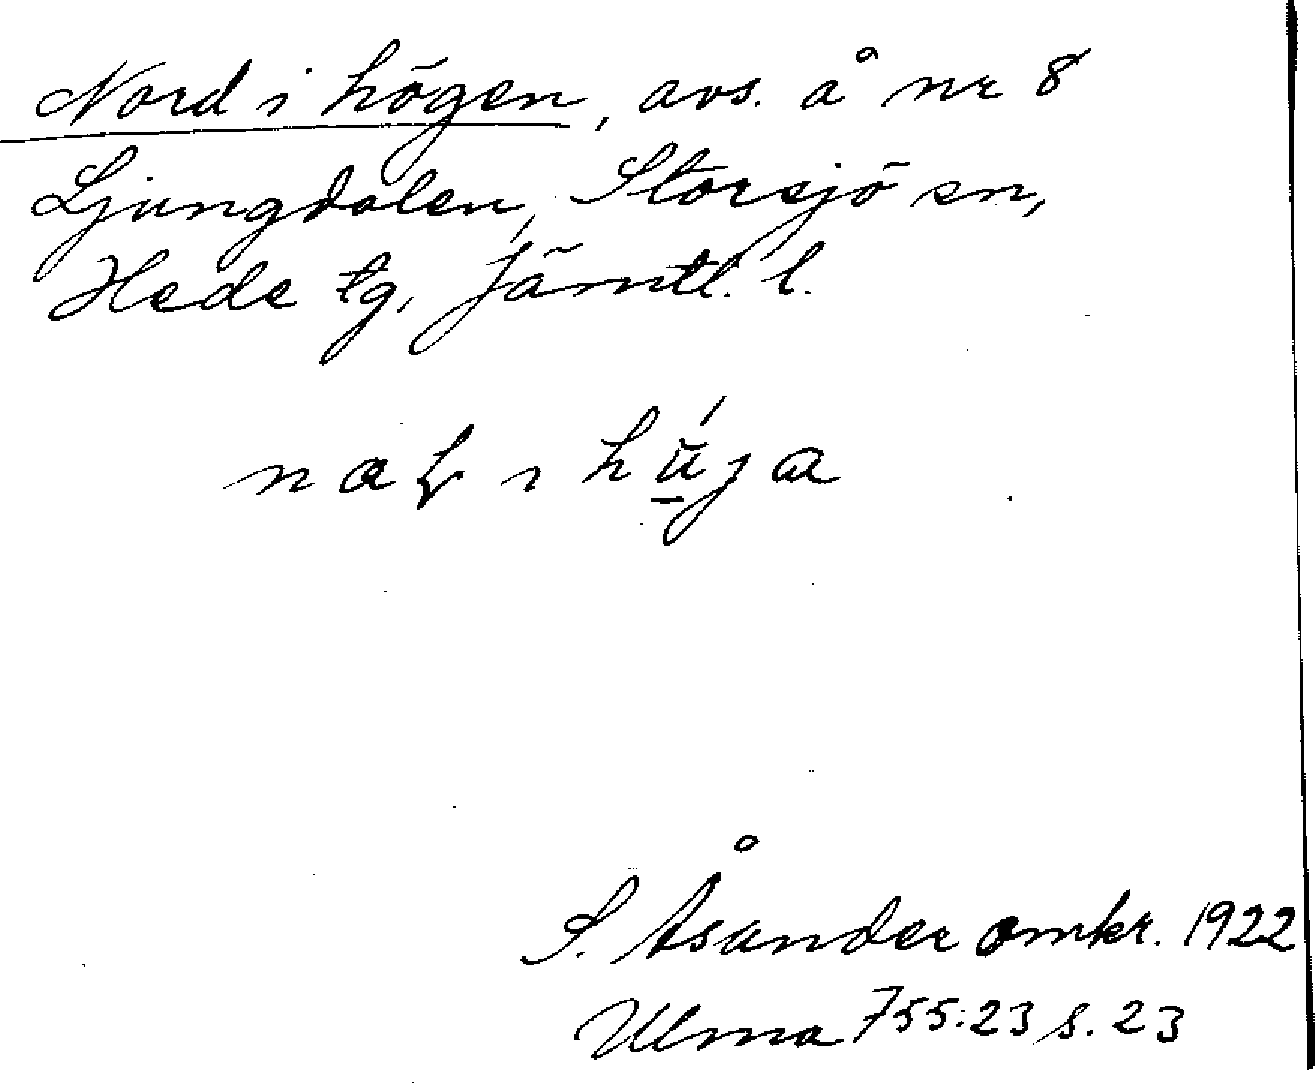 Nord i högen, avs. å nr 8
Ljungdalen, Storsjö sn,
Hede tg, Jämtl. l.
S. Åsander omkr. 1922
Ulma 755:23 s. 23